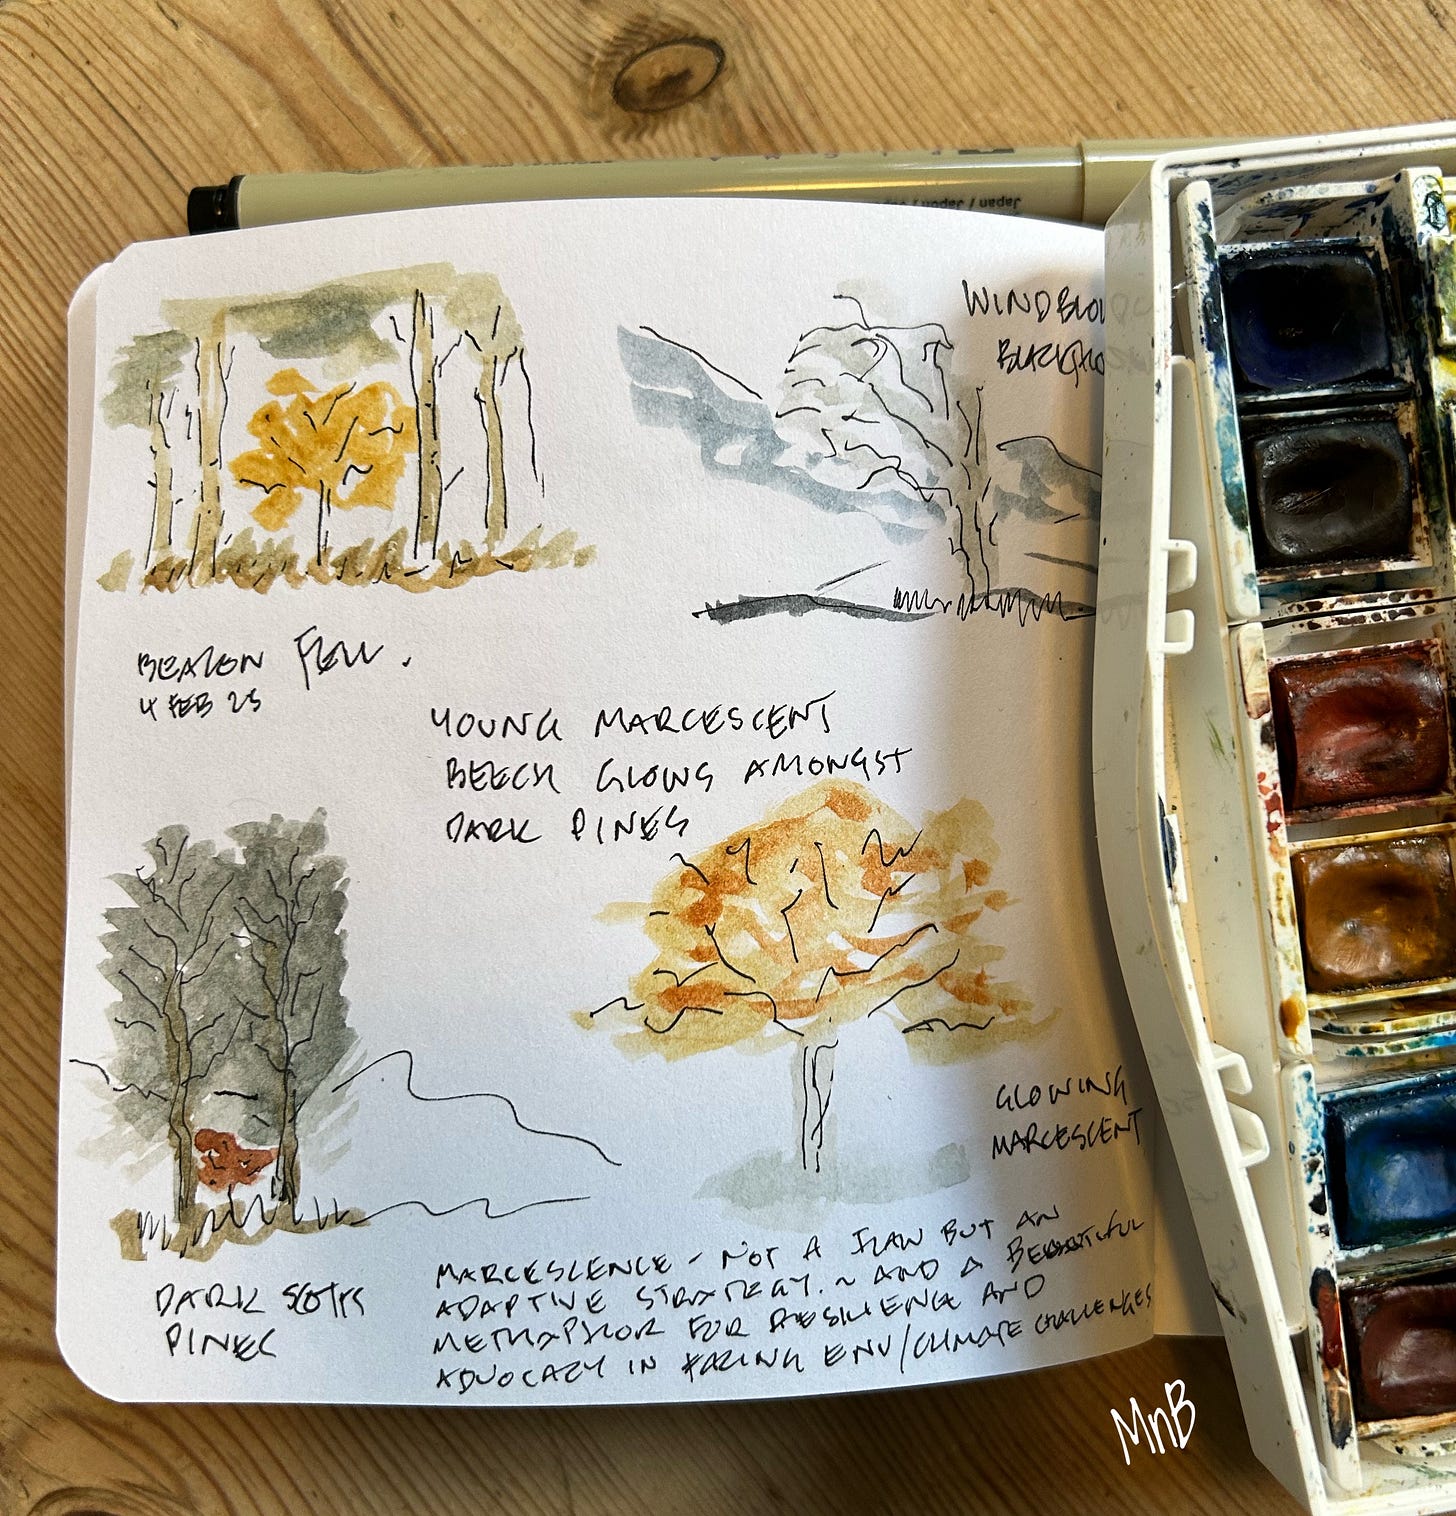 Japan / Japon /
WINDBLO
BEACON FELL.
4 FEB 25
YOUNG MARCESCENT
BEECH GLOWS AMONGST
DARK PINES
GLOWING
MARCESCENT
DARK SCOTS
PINES
MARCESCENCE - NOT A FLAW BUT AN
ADAPTIVE STRATEGY. ~ AND A BEAUTIFUL
METAPHOR FOR RESILIENCE AND
ADVOCACY IN FACING ENV/CLIMATE CHALLENGES
MnB